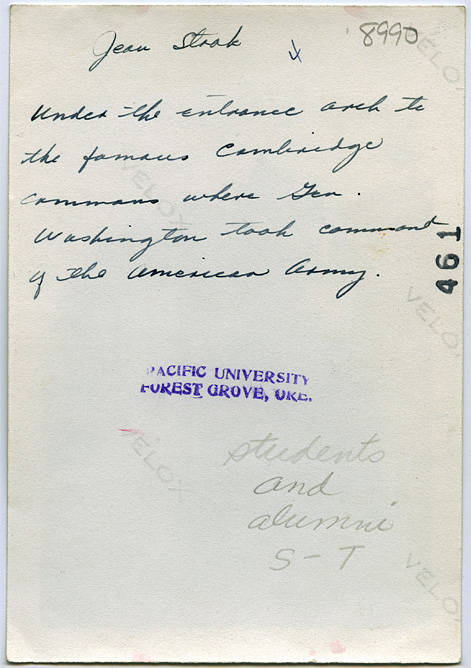 Jean Stook
8990
Under the entrance arch to
the famous Cambridge
commons where Gen.
Washington took command
of the American Army.
461
PACIFIC UNIVERSITY
FOREST GROVE, ORE.
students
and
alumni
S-T
VELOX
VELOX
VELOX
VELOX
VELOX